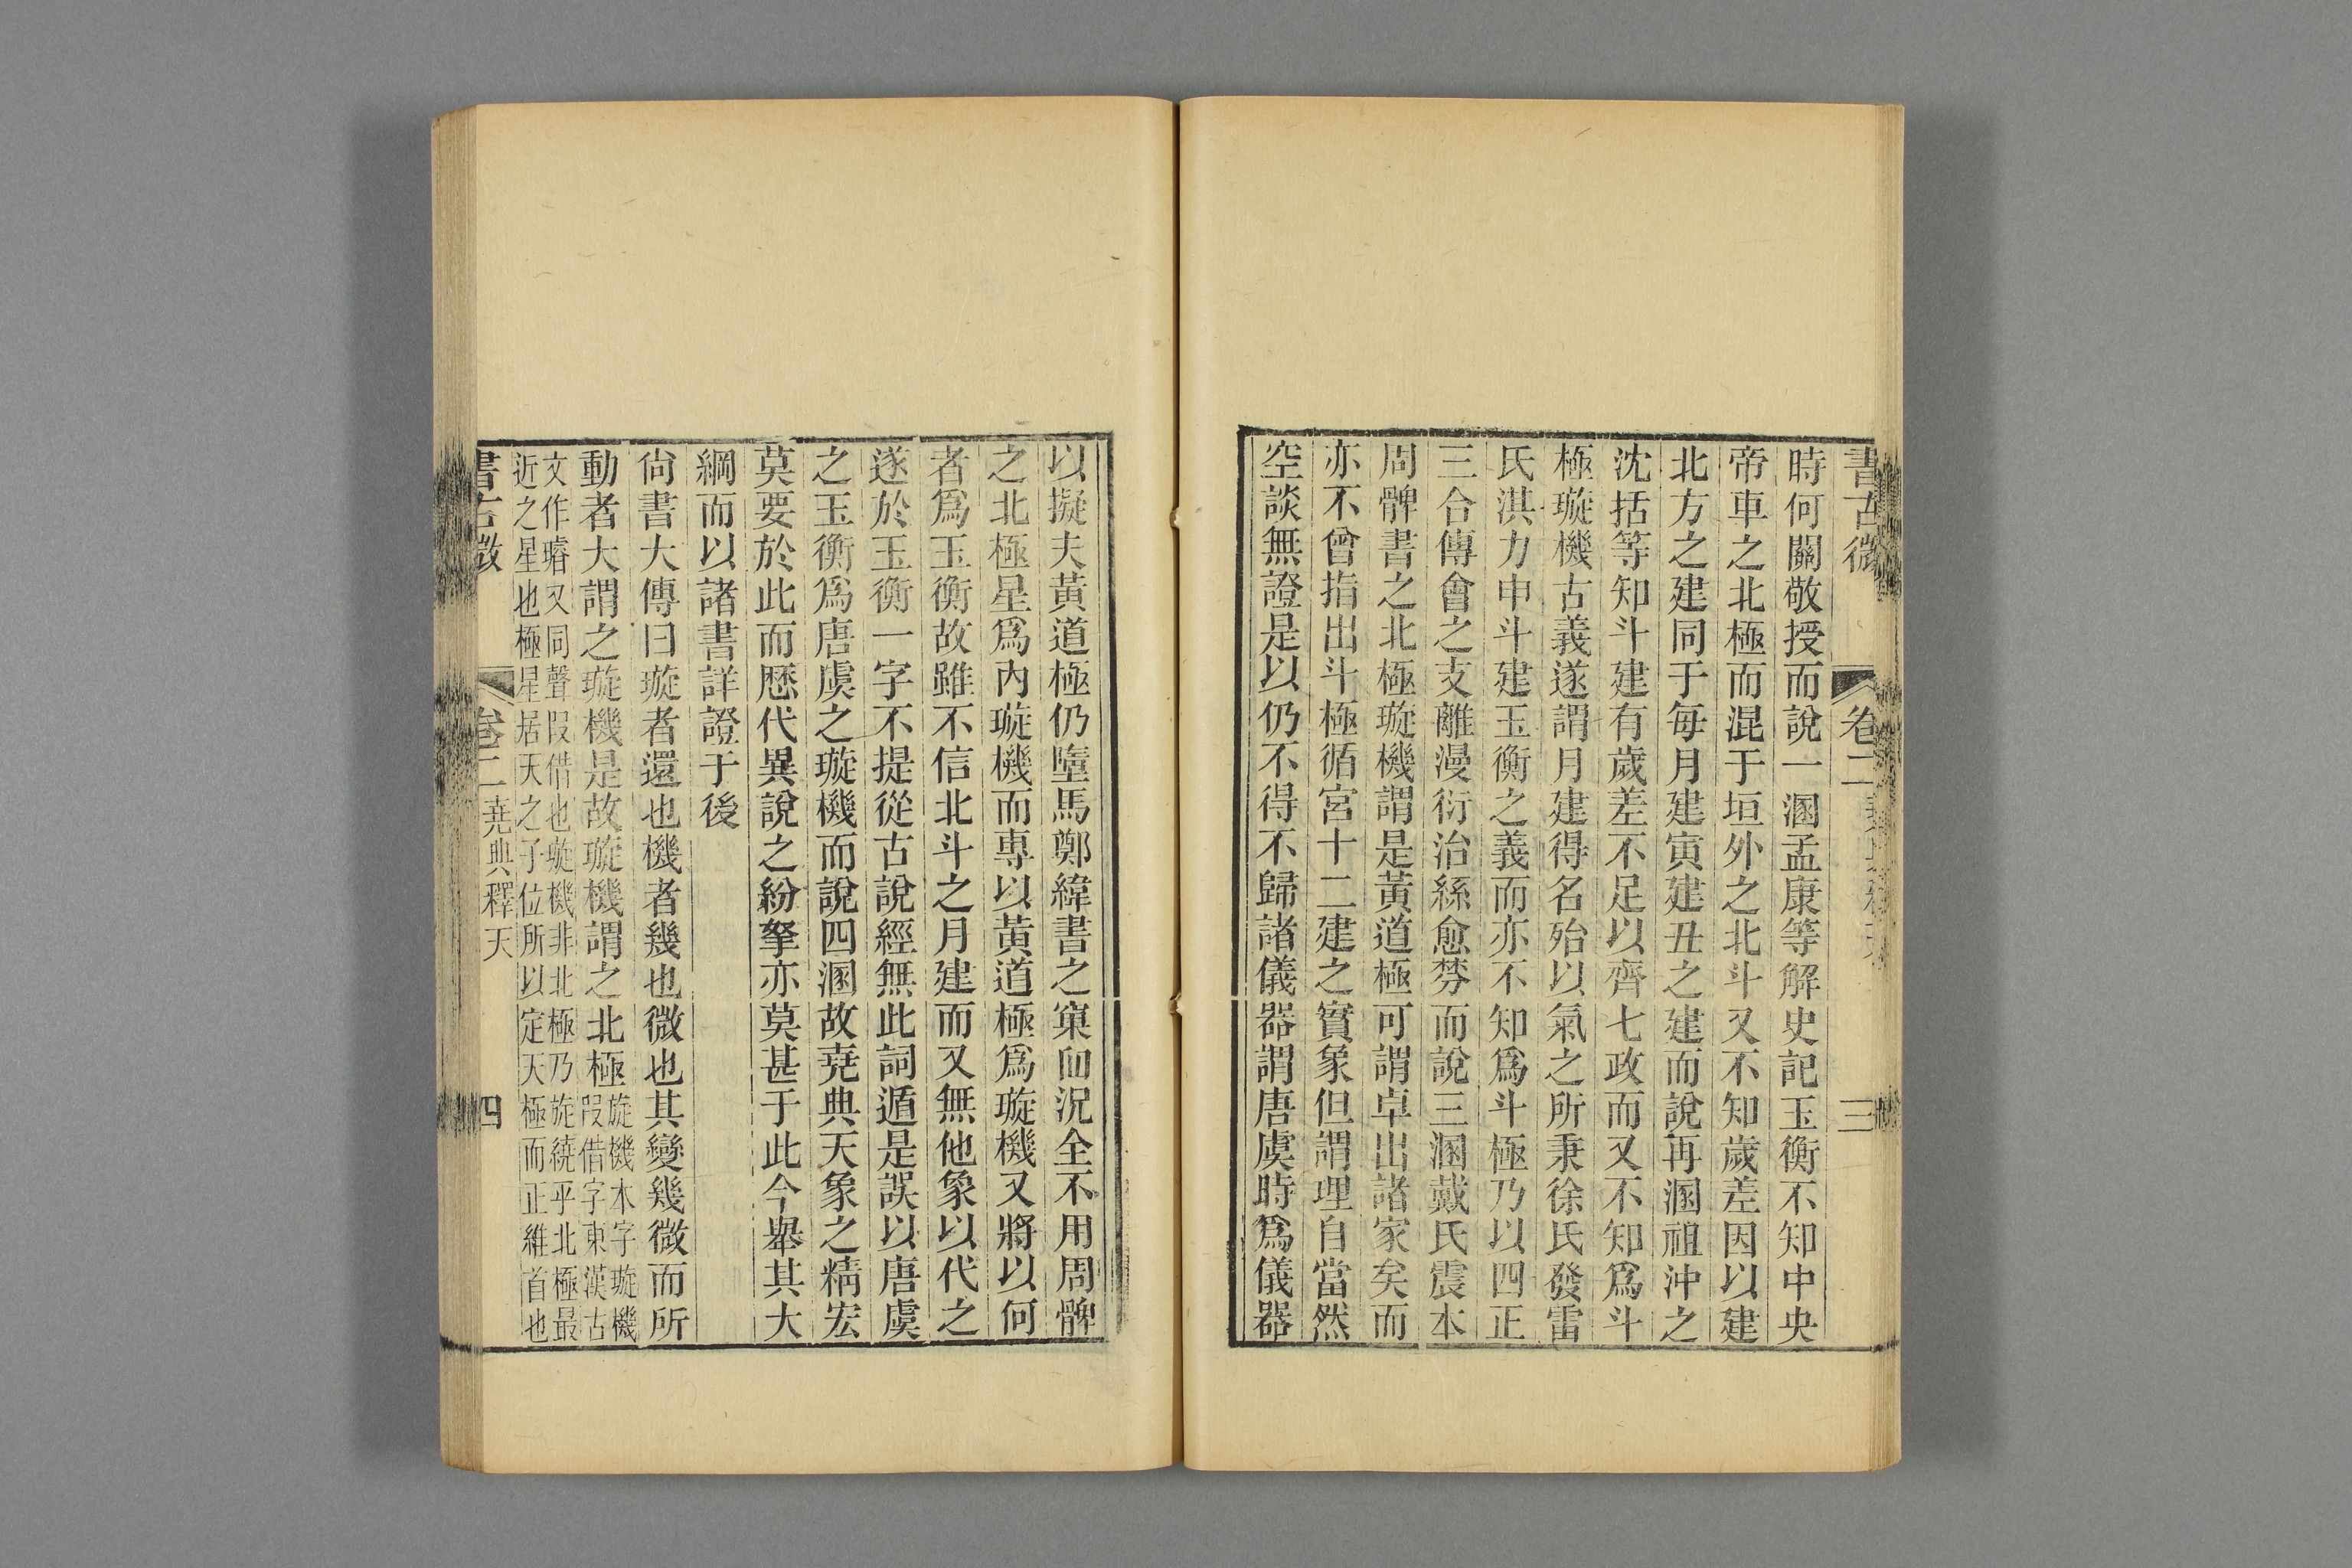 書古微 卷二 三
時何關敬授而說一溷孟康等解史記玉衡不知中央
帝車之北極而混于垣外之北斗又不知歲差因以建
北方之建同于每月建寅建丑之建而說再溷祖沖之
沈括等知斗建有歲差不足以齊七政而又不知爲斗
極璇機古義遂謂月建得名殆以氣之所秉徐氏發雷
氏淇力申斗建玉衡之義而亦不知爲斗極乃以四正
三合傅會之支離漫衍治絲愈棼而說三溷戴氏震本
周髀書之北極璇機謂是黃道極可謂卓出諸家矣而
亦不曾指出斗極循宮十二建之實象但謂理自當然
空談無證是以仍不得不歸諸儀器謂唐虞時爲儀器
以擬夫黃道極仍墮馬鄭緯書之窠臼況全不用周髀
之北極星爲內璇機而專以黃道極爲璇機又將以何
者爲玉衡故雖不信北斗之月建而又無他象以代之
遂於玉衡一字不提從古說經無此詞遁是誤以唐虞
之玉衡爲唐虞之璇機而說四溷故堯典天象之精宏
莫要於此而歷代異說之紛拏亦莫甚于此今舉其大
綱而以諸書詳證于後
尙書大傳曰璇者還也機者幾也微也其變幾微而所
動者大謂之璇機是故璇機謂之北極旋機本字璇機
叚借字東漢古
文作璿又同聲叚借也璇機非北極乃旋繞乎北極最
近之星也極星居天之子位所以定天極而正維首也
書古微 卷二 堯典釋天 四